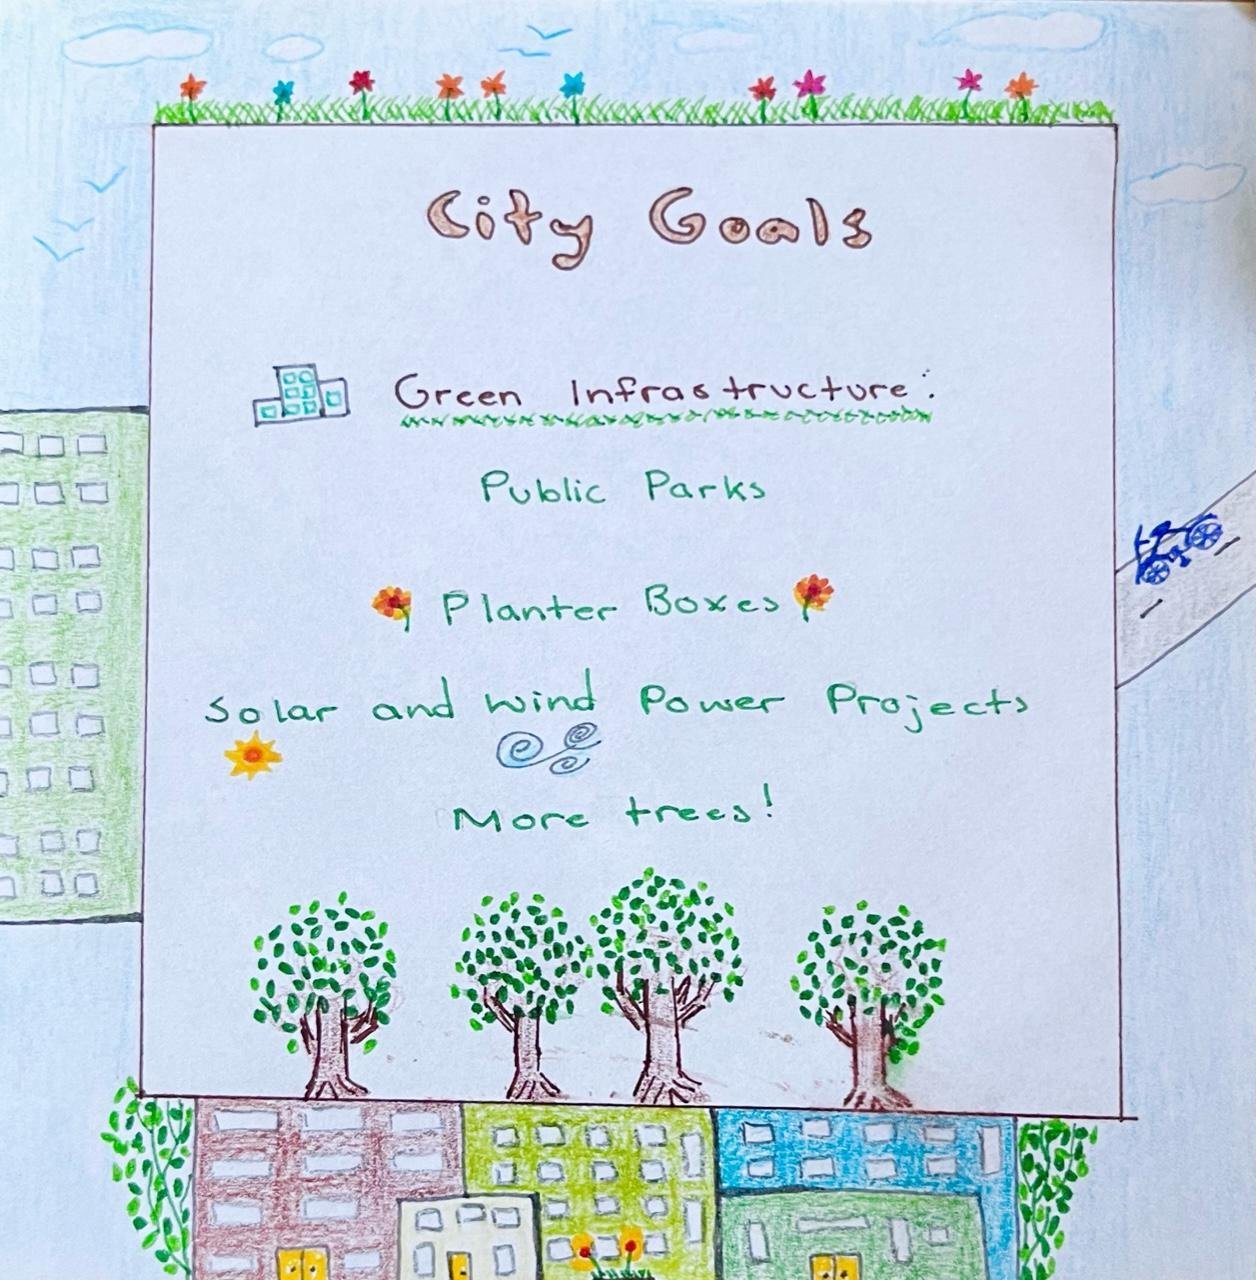 City Goals
Green Infrastructure:
Public Parks
Planter Boxes
Solar and wind Power Projects
More trees!